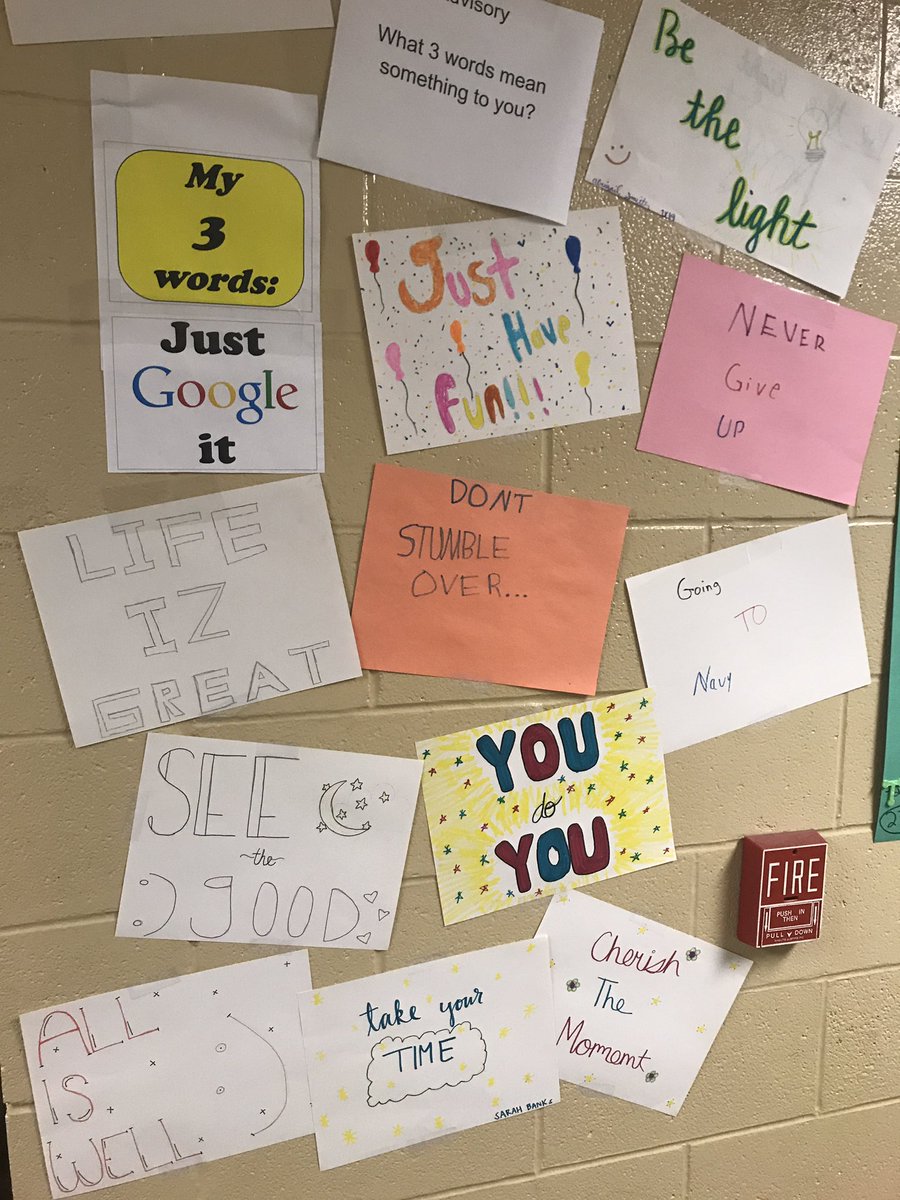 Advisory
What 3 words mean
something to you?
Be
the
light
My
3
words:
Just
Google
it
Just
Have
Fun!!!
NEVER
Give
UP
LIFE
IZ
GREAT
DONT
STUMBLE
OVER...
Going
TO
Navy
SEE
~the~
:) GOOD
YOU
do
YOU
FIRE
PUSH IN
THEN
PULL DOWN
Cherish
The
Moment
ALL
IS
WELL
take your
TIME
SARAH BANKS